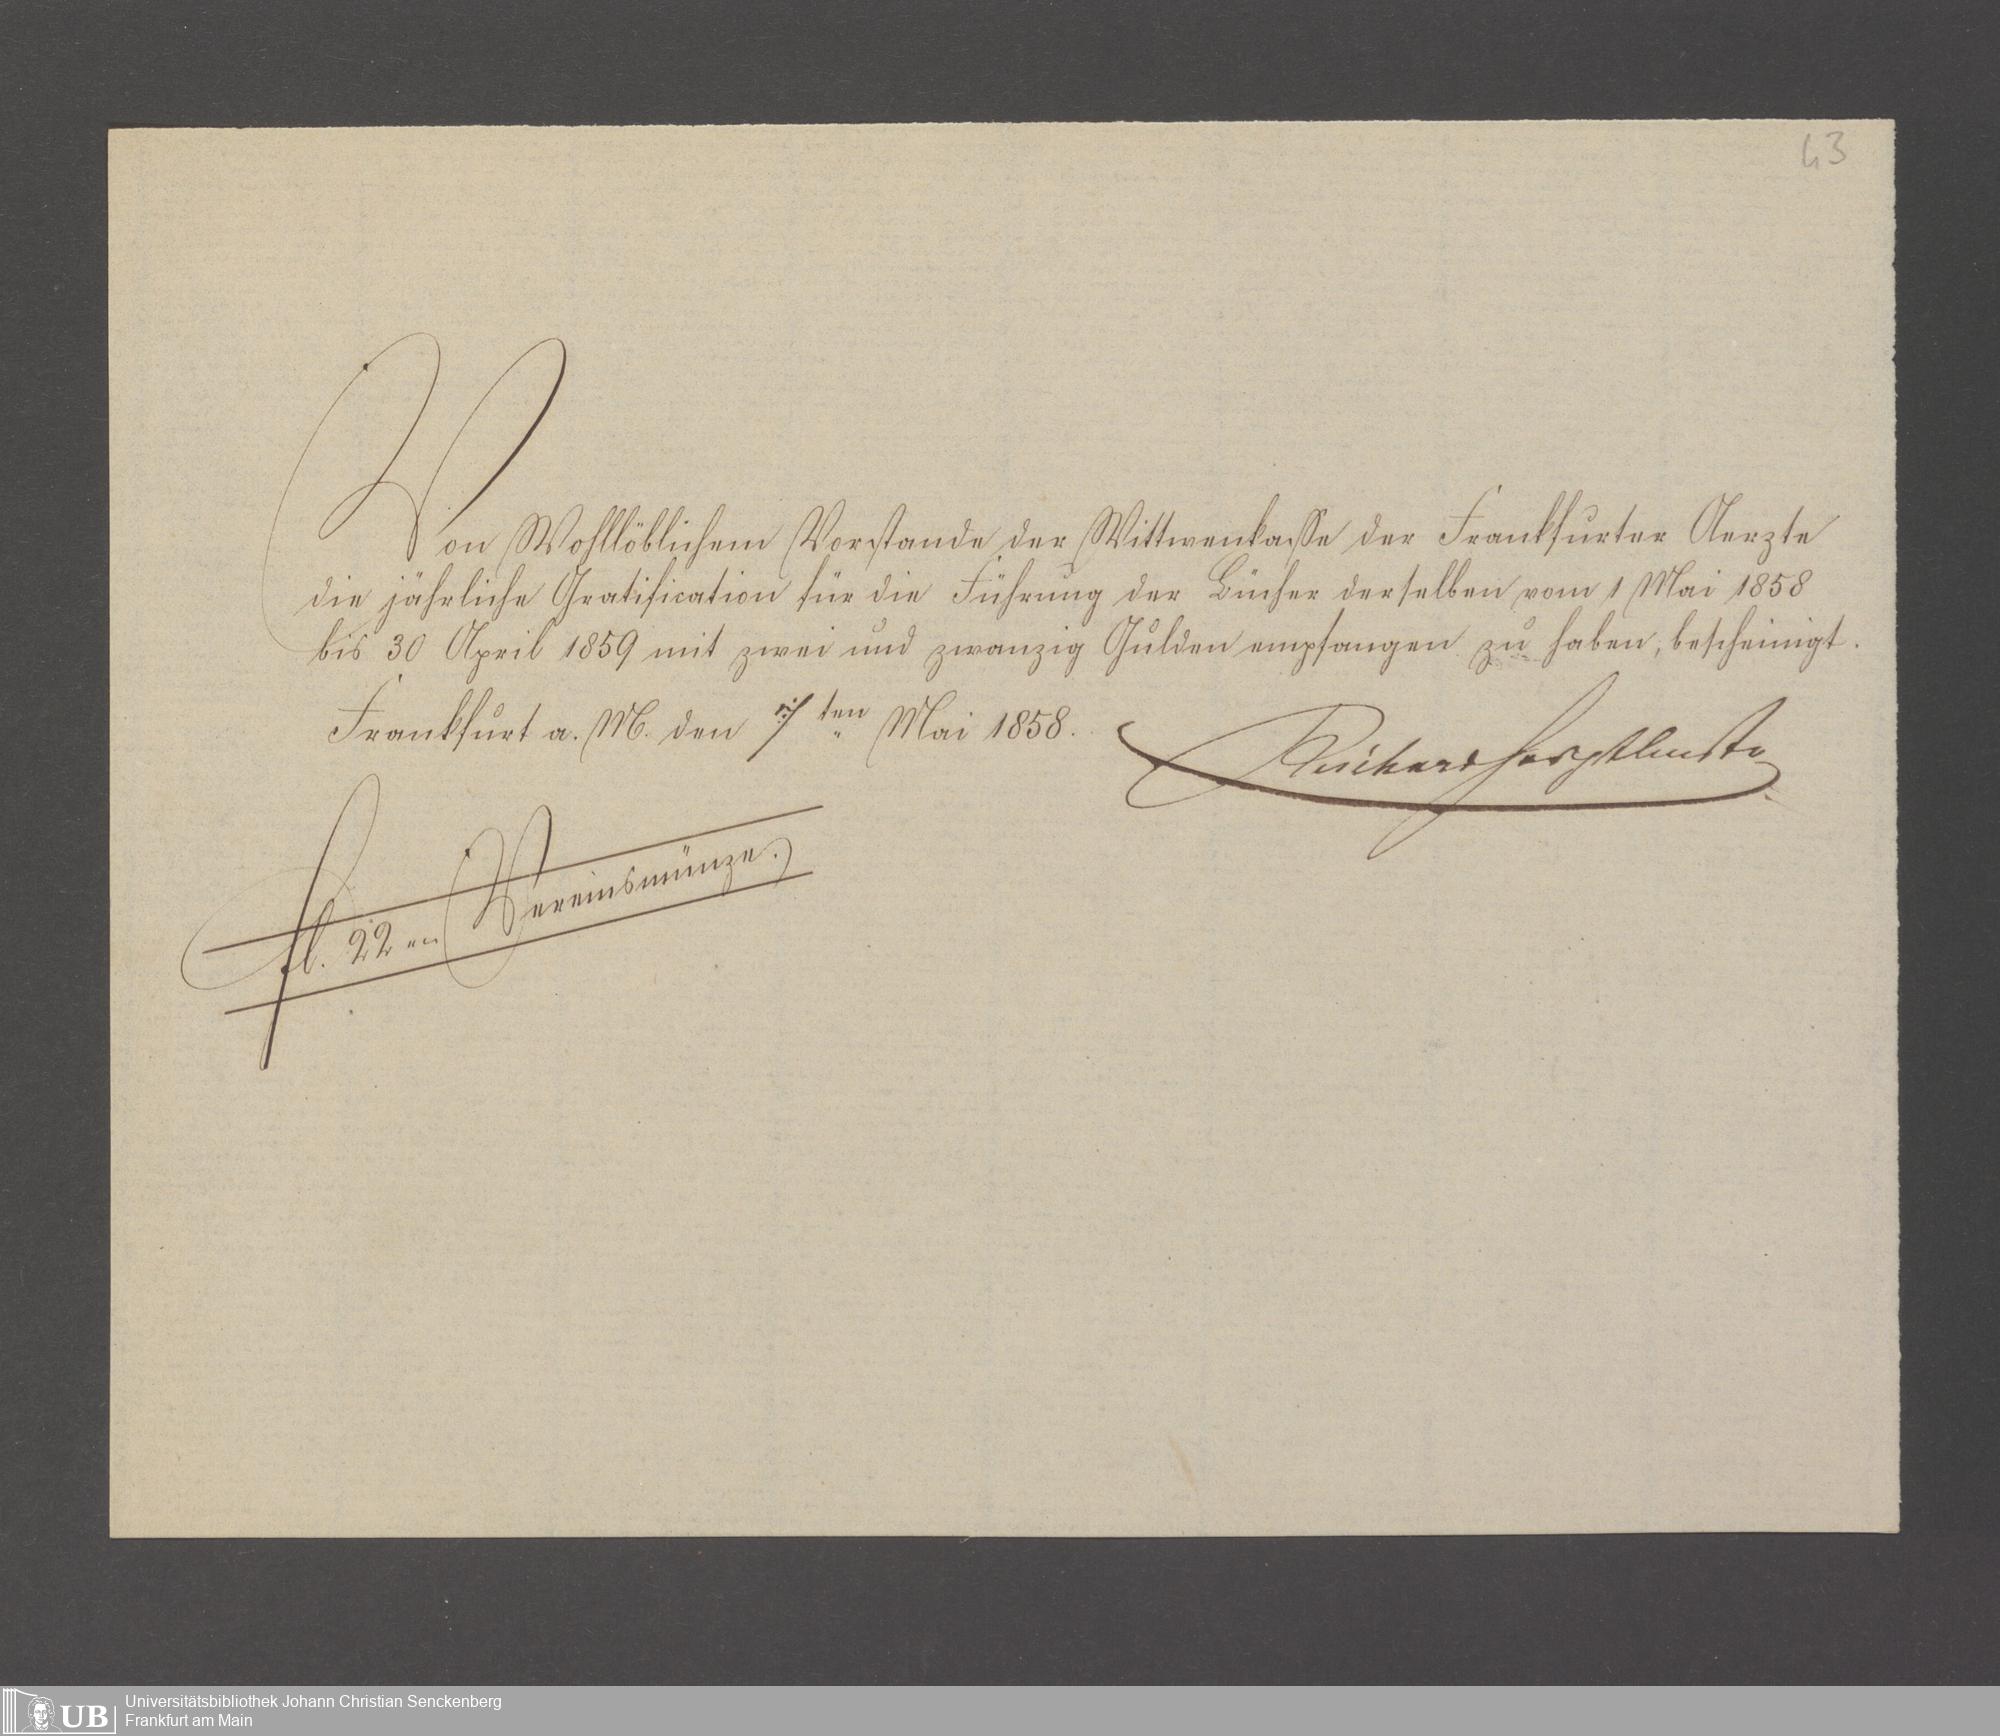 43
Von Wohllöblichem Vorstande der Wittwenkasse der Frankfurter Aerzte
die jährliche Gratification für die Führung der Bücher derselben vom 1 Mai 1858
bis 30 April 1859 mit zwei und zwanzig Gulden empfangen zu haben, bescheinigt.
Frankfurt a. M. den 7ten Mai 1858.
fl. 22 Vereinsmünze.
UB
Universitätsbibliothek Johann Christian Senckenberg
Frankfurt am Main